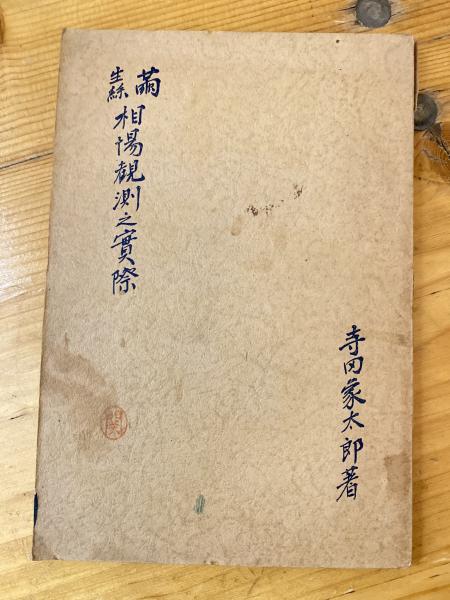 繭
生絲
相場観測之實際
寺田象太郎著
関